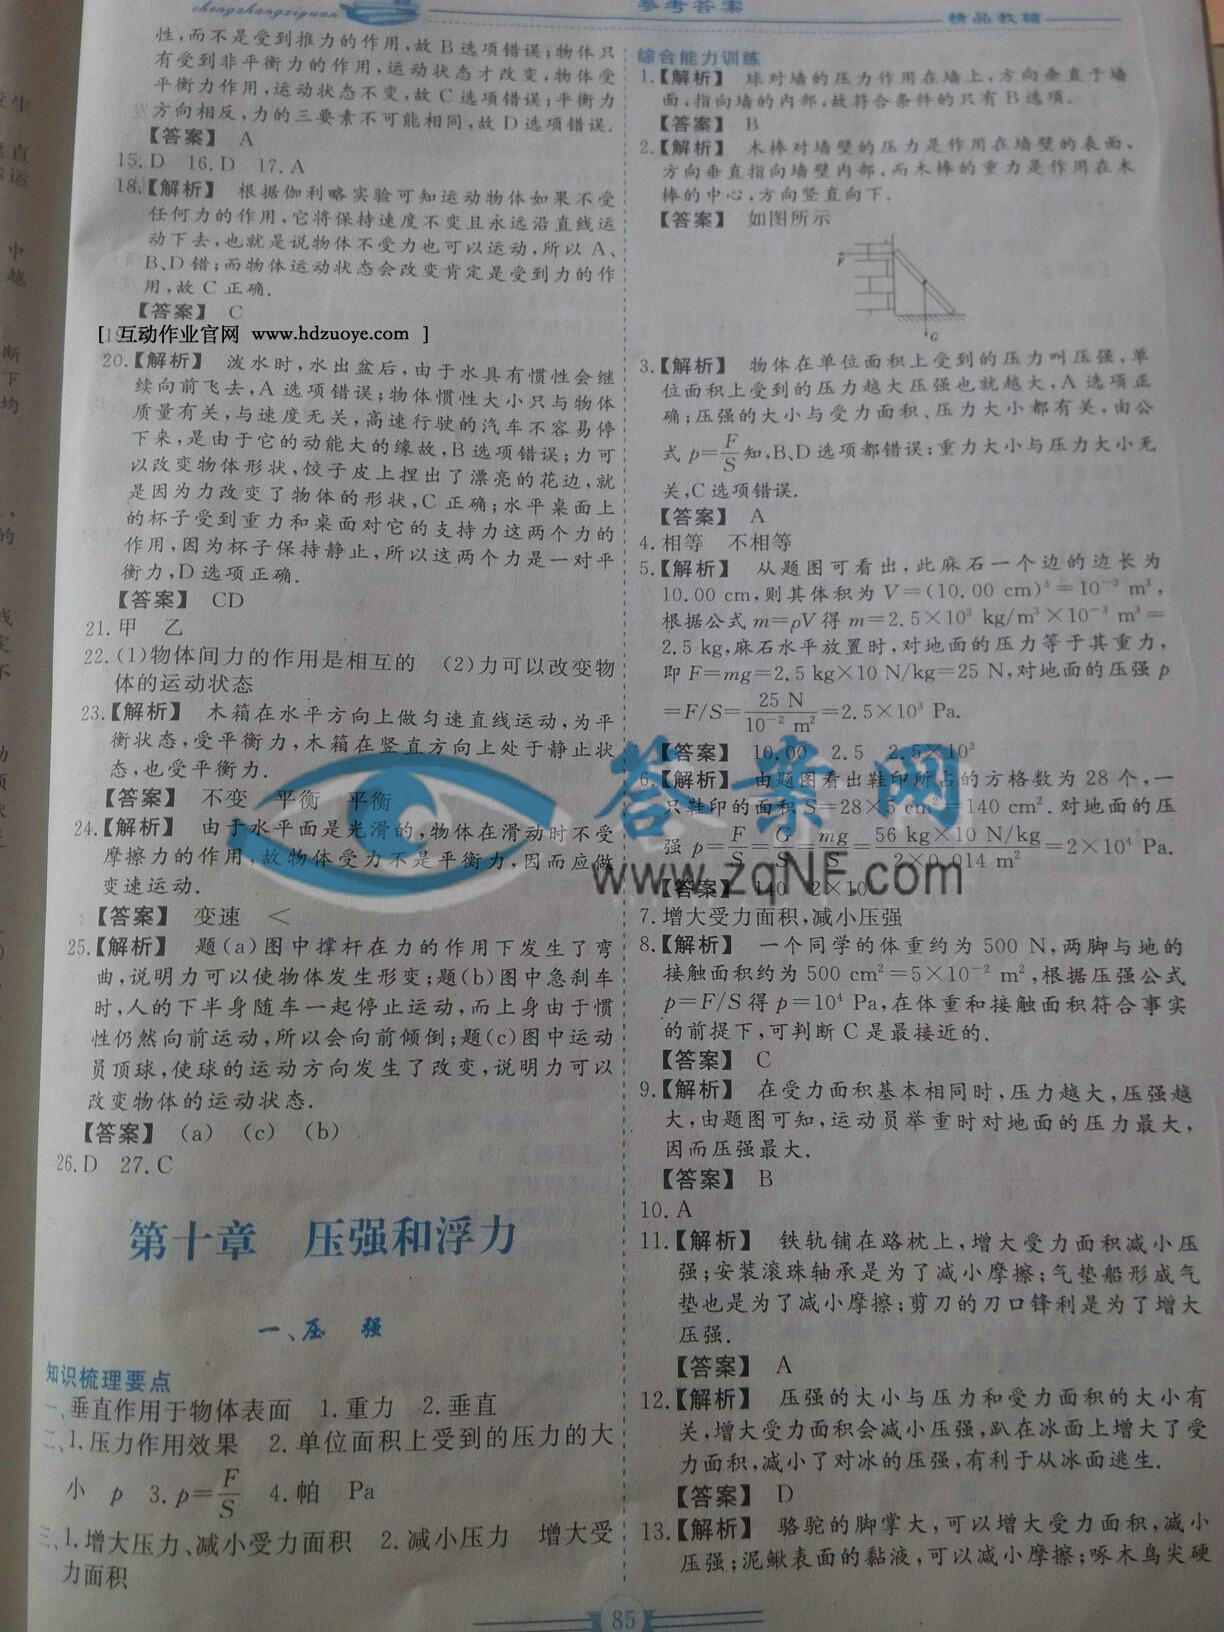 chengzhangziyuan
参考答案
精品教辅
性,而不是受到推力的作用,故B选项错误;物体只
有受到非平衡力的作用,运动状态才改变,物体受
平衡力作用,运动状态不变,故C选项错误;平衡力
方向相反,力的三要素不可能相同,故D选项错误.
【答案】 A
15.D 16.D 17.A
18.【解析】 根据伽利略实验可知运动物体如果不受
任何力的作用,它将保持速度不变且永远沿直线运
动下去,也就是说物体不受力也可以运动,所以A、
B、D错;而物体运动状态会改变肯定是受到力的作
用,故C正确.
【答案】 C
[ 互动作业官网 www.hdzuoye.com ]
20.【解析】 泼水时,水出盆后,由于水具有惯性会继
续向前飞去,A选项错误;物体惯性大小只与物体
质量有关,与速度无关,高速行驶的汽车不容易停
下来,是由于它的动能大的缘故,B选项错误;力可
以改变物体形状,饺子皮上捏出了漂亮的花边,就
是因为力改变了物体的形状,C正确;水平桌面上
的杯子受到重力和桌面对它的支持力这两个力的
作用,因为杯子保持静止,所以这两个力是一对平
衡力,D选项正确.
【答案】 CD
21.甲 乙
22.(1)物体间力的作用是相互的 (2)力可以改变物
体的运动状态
23.【解析】 木箱在水平方向上做匀速直线运动,为平
衡状态,受平衡力,木箱在竖直方向上处于静止状
态,也受平衡力.
【答案】 不变 平衡 平衡
24.【解析】 由于水平面是光滑的,物体在滑动时不受
摩擦力的作用,故物体受力不是平衡力,因而应做
变速运动.
【答案】 变速 <
25.【解析】 题(a)图中撑杆在力的作用下发生了弯
曲,说明力可以使物体发生形变;题(b)图中急刹车
时,人的下半身随车一起停止运动,而上身由于惯
性仍然向前运动,所以会向前倾倒;题(c)图中运动
员顶球,使球的运动方向发生了改变,说明力可以
改变物体的运动状态.
【答案】 (a) (c) (b)
26.D 27.C
第十章 压强和浮力
一、压 强
知识梳理要点
一、垂直作用于物体表面 1.重力 2.垂直
二、1.压力作用效果 2.单位面积上受到的压力的大
小 p 3.p=F/S 4.帕 Pa
三、1.增大压力、减小受力面积 2.减小压力 增大受
力面积
综合能力训练
1.【解析】 球对墙的压力作用在墙上,方向垂直于墙
面,指向墙的内部,故符合条件的只有B选项.
【答案】 B
2.【解析】 木棒对墙壁的压力是作用在墙壁的表面,
方向垂直指向墙壁内部,而木棒的重力是作用在木
棒的中心,方向竖直向下.
【答案】 如图所示
F
G
3.【解析】 物体在单位面积上受到的压力叫压强,单
位面积上受到的压力越大压强也就越大,A选项正
确;压强的大小与受力面积、压力大小都有关,由公
式p=F/S知,B、D选项都错误;重力大小与压力大小无
关,C选项错误.
【答案】 A
4.相等 不相等
5.【解析】 从题图可看出,此麻石一个边的边长为
10.00 cm,则其体积为V=(10.00 cm)³=10⁻³ m³,
根据公式m=ρV得m=2.5×10³ kg/m³×10⁻³ m³=
2.5 kg,麻石水平放置时,对地面的压力等于其重力,
即F=mg=2.5 kg×10 N/kg=25 N,对地面的压强p
=F/S=25 N/10⁻² m²=2.5×10³ Pa.
【答案】 10.00 2.5 2.5×10³
6.【解析】 由题图看出鞋印所占的方格数为28个,一
只鞋印的面积S=28×5 cm²=140 cm².对地面的压
强p=F/S=G/S=mg/S=56 kg×10 N/kg/2×0.014 m²=2×10⁴ Pa.
【答案】 140 2×10
7.增大受力面积,减小压强
8.【解析】 一个同学的体重约为500 N,两脚与地的
接触面积约为500 cm²=5×10⁻² m²,根据压强公式
p=F/S得p=10⁴ Pa,在体重和接触面积符合事实
的前提下,可判断C是最接近的.
【答案】 C
9.【解析】 在受力面积基本相同时,压力越大,压强越
大,由题图可知,运动员举重时对地面的压力最大,
因而压强最大.
【答案】 B
10.A
11.【解析】 铁轨铺在路枕上,增大受力面积减小压
强;安装滚珠轴承是为了减小摩擦;气垫船形成气
垫也是为了减小摩擦;剪刀的刀口锋利是为了增大
压强.
【答案】 A
12.【解析】 压强的大小与压力和受力面积的大小有
关,增大受力面积会减小压强,趴在冰面上增大了受
力面积,减小了对冰的压强,有利于从冰面逃生.
【答案】 D
13.【解析】 骆驼的脚掌大,可以增大受力面积,减小
压强;泥鳅表面的黏液,可以减小摩擦;啄木鸟尖硬
答案网
www.zqNF.com
85